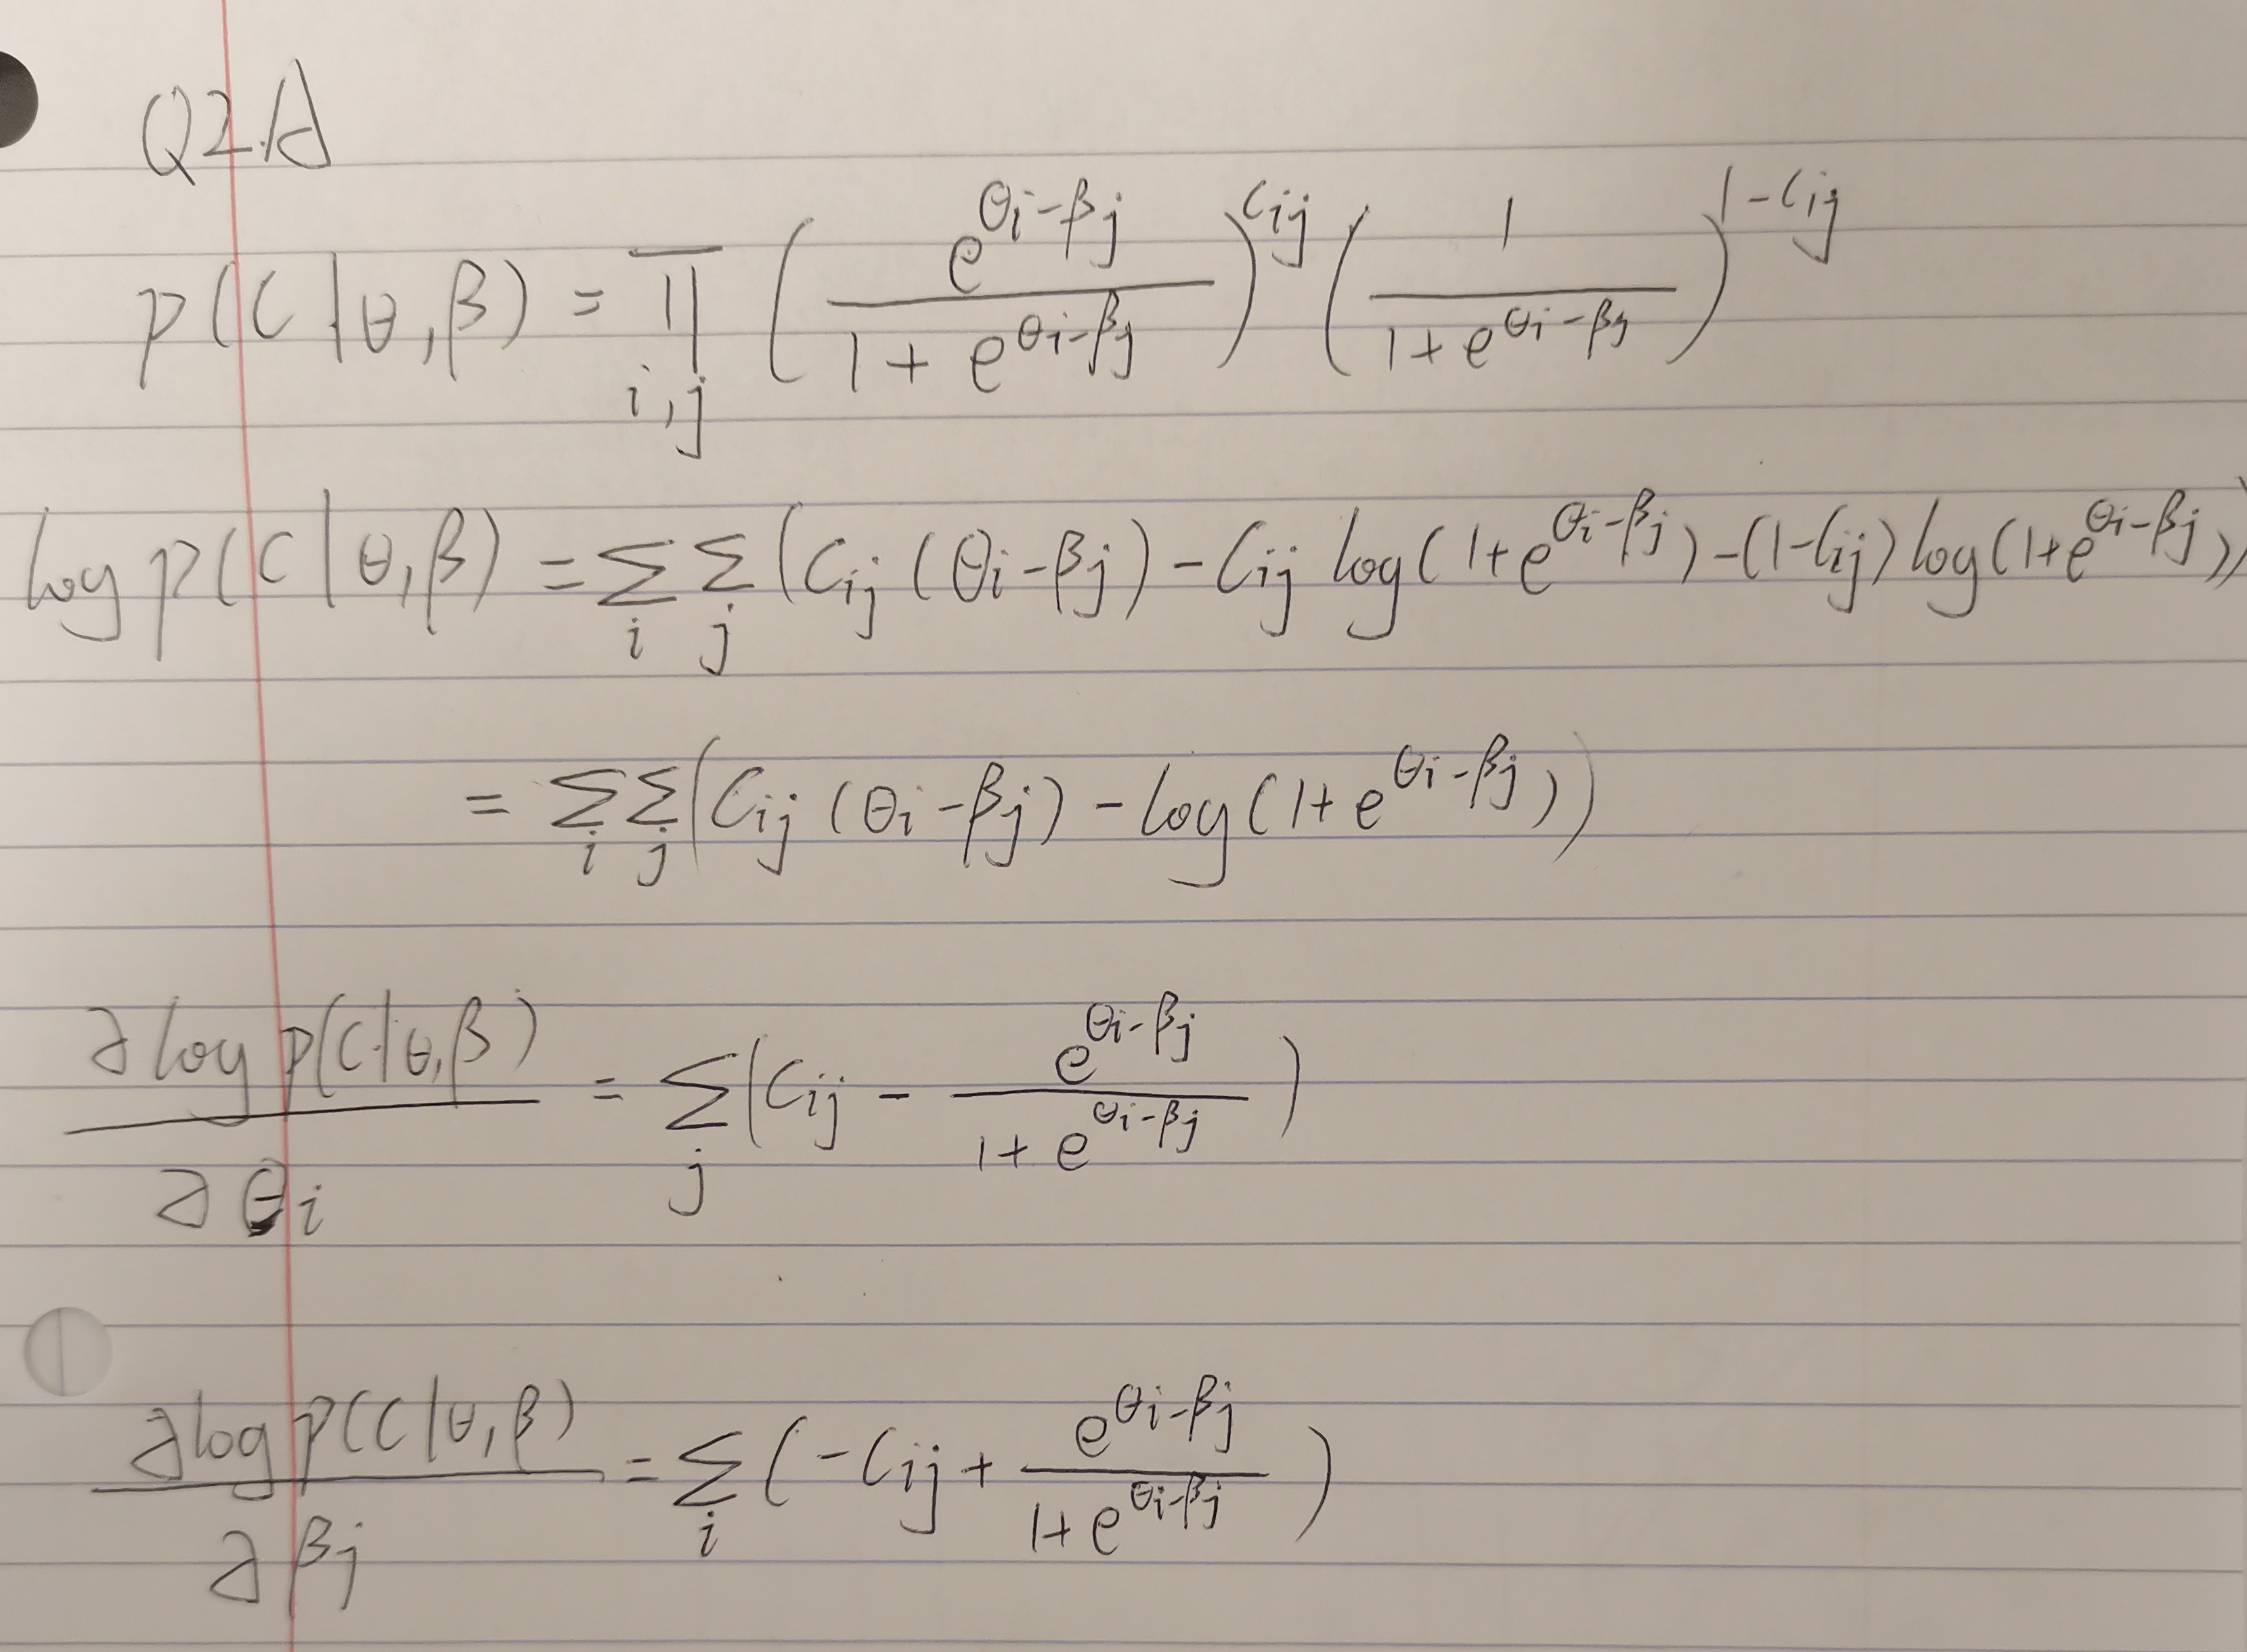 Q2.A
p(C|θ,β) = ∏_{i,j} (e^{θi-βj} / (1 + e^{θi-βj}))^{Cij} (1 / (1 + e^{θi-βj}))^{1-Cij}
log p(C|θ,β) = Σ_i Σ_j (Cij (θi-βj) - Cij log(1+e^{θi-βj}) - (1-Cij) log(1+e^{θi-βj}))
= Σ_i Σ_j (Cij (θi-βj) - log(1+e^{θi-βj}))
∂log p(C|θ,β) / ∂θi = Σ_j (Cij - e^{θi-βj} / (1 + e^{θi-βj}))
∂log p(C|θ,β) / ∂βj = Σ_i (-Cij + e^{θi-βj} / (1 + e^{θi-βj}))